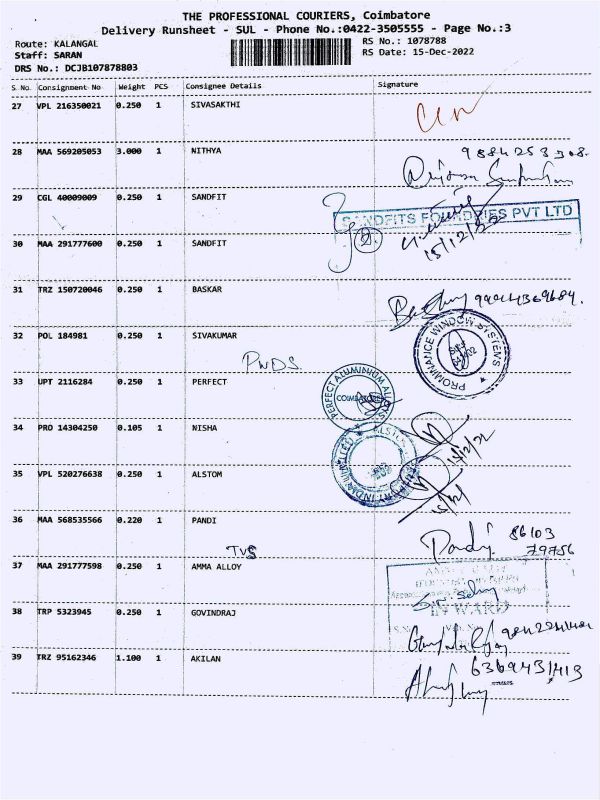 THE PROFESSIONAL COURIERS, Coimbatore
Delivery Runsheet - SUL - Phone No.:0422-3505555 - Page No.:3
Route: KALANGAL RS No.: 1078788
Staff: SARAN RS Date: 15-Dec-2022
DRS No.: DCJB107878803
S No. Consignment No Weight PCS Consignee Details Signature
27 VPL 216350021 0.250 1 SIVASAKTHI
28 MAA 569205053 3.000 1 NITHYA
29 CGL 40009009 0.250 1 SANDFIT
SANDFITS FOUNDRIES PVT LTD
30 MAA 291777600 0.250 1 SANDFIT
15/12/22
31 TRZ 150720046 0.250 1 BASKAR
32 POL 184981 0.250 1 SIVAKUMAR
PROMINANCE WINDOW SYSTEMS
PWDS
33 UPT 2116284 0.250 1 PERFECT
PERFECT ALUMINIUM ALLOY
COIMBATORE
34 PRO 14304250 0.105 1 NISHA
15/12/22
35 VPL 520276638 0.250 1 ALSTOM
36 MAA 568535566 0.220 1 PANDI
Pandi 86103
79756
TVS
37 MAA 291777598 0.250 1 AMMA ALLOY
IN WARD
38 TRP 5323945 0.250 1 GOVINDRAJ
39 TRZ 95162346 1.100 1 AKILAN
6369431413